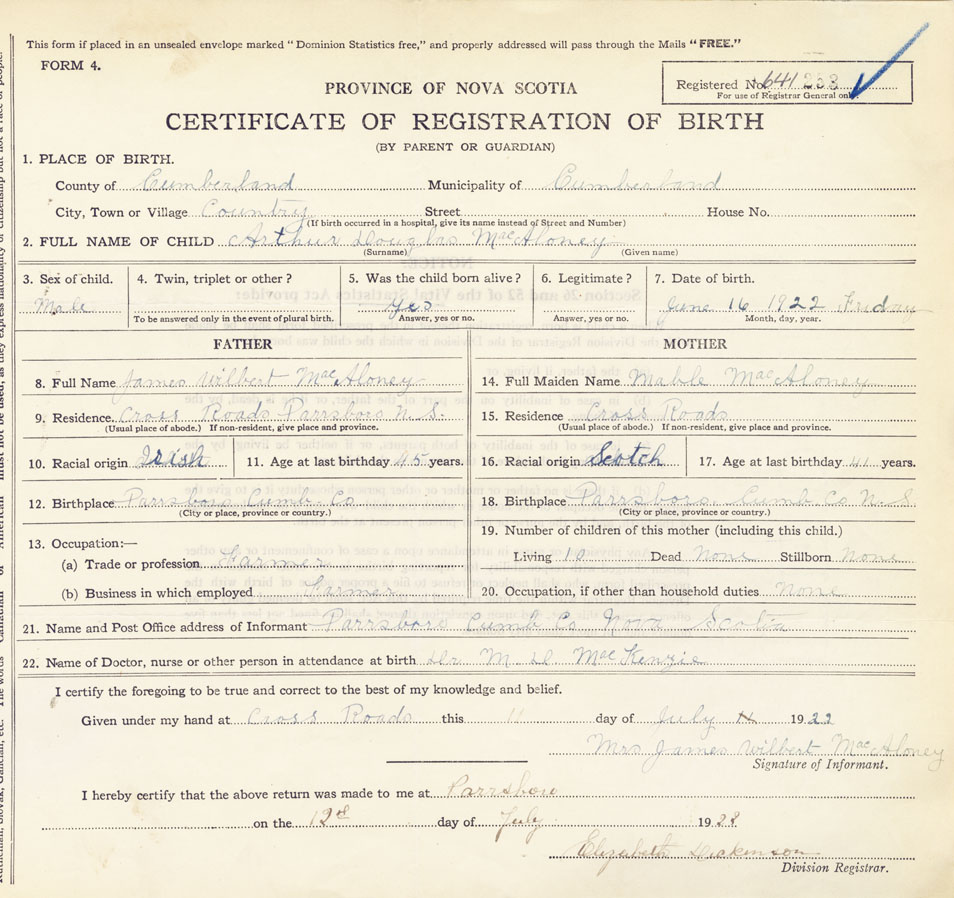 This form if placed in an unsealed envelope marked "Dominion Statistics free," and properly addressed will pass through the Mails "FREE."
FORM 4.
Registered No. 641
For use of Registrar General only.
PROVINCE OF NOVA SCOTIA
CERTIFICATE OF REGISTRATION OF BIRTH
(BY PARENT OR GUARDIAN)
1. PLACE OF BIRTH.
County of Cumberland Municipality of Cumberland
City, Town or Village Country Street House No.
(If birth occurred in a hospital, give its name instead of Street and Number)
2. FULL NAME OF CHILD Arthur Douglas MacAloney
(Surname) (Given name)
3. Sex of child. 4. Twin, triplet or other? 5. Was the child born alive? 6. Legitimate? 7. Date of birth.
Male Yes June 16 1922 Friday
To be answered only in the event of plural birth. Answer, yes or no. Answer, yes or no. Month, day, year.
FATHER MOTHER
8. Full Name James Wilbert MacAloney 14. Full Maiden Name Mable MacAloney
9. Residence Cross Roads Parrsboro N.S. 15. Residence Cross Roads
(Usual place of abode.) If non-resident, give place and province. (Usual place of abode.) If non-resident, give place and province.
10. Racial origin Irish 11. Age at last birthday 45 years. 16. Racial origin Scotch 17. Age at last birthday 41 years.
12. Birthplace Parrsboro Cumb. Co 18. Birthplace Parrsboro. Cumb Co N.S.
(City or place, province or country.) (City or place, province or country.)
13. Occupation:— 19. Number of children of this mother (including this child.)
(a) Trade or profession Farmer Living 10 Dead None Stillborn None
(b) Business in which employed Farmer 20. Occupation, if other than household duties None
21. Name and Post Office address of Informant Parrsboro Cumb Co Nova Scotia
22. Name of Doctor, nurse or other person in attendance at birth Dr M. D. MacKenzie
I certify the foregoing to be true and correct to the best of my knowledge and belief.
Given under my hand at Cross Roads this 11 day of July 1922
Mrs James Wilbert MacAloney
Signature of Informant.
I hereby certify that the above return was made to me at Parrsboro
on the 12th day of July 192
Elizabeth Dickinson
Division Registrar.